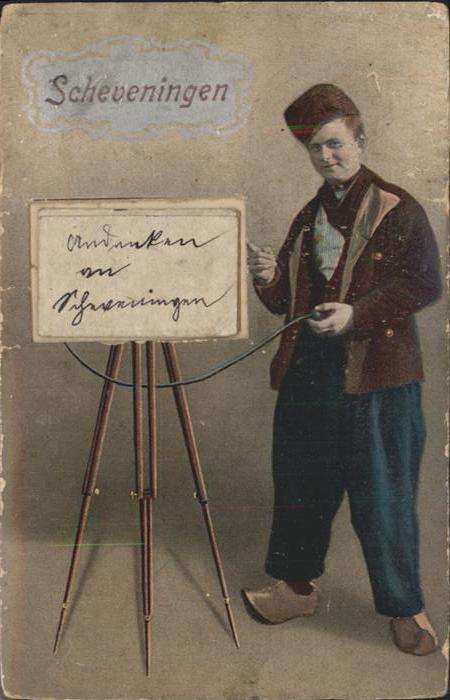 Scheveningen
Andenken
an
Scheveningen